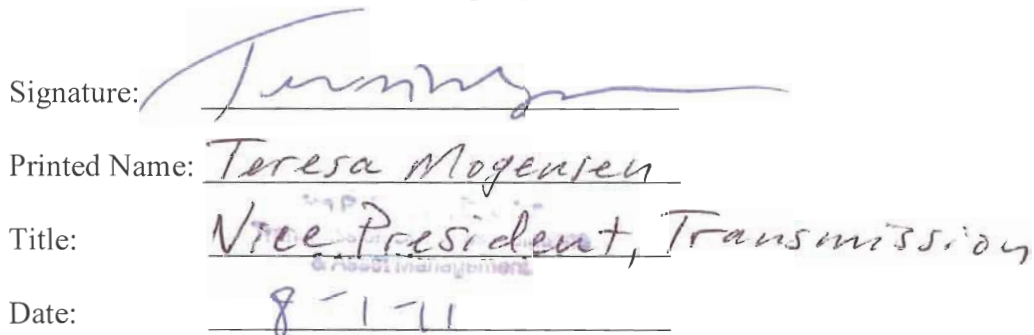 Signature:
Printed Name: Teresa Mogensen
Title: Vice President, Transmission
Date: 8-1-11